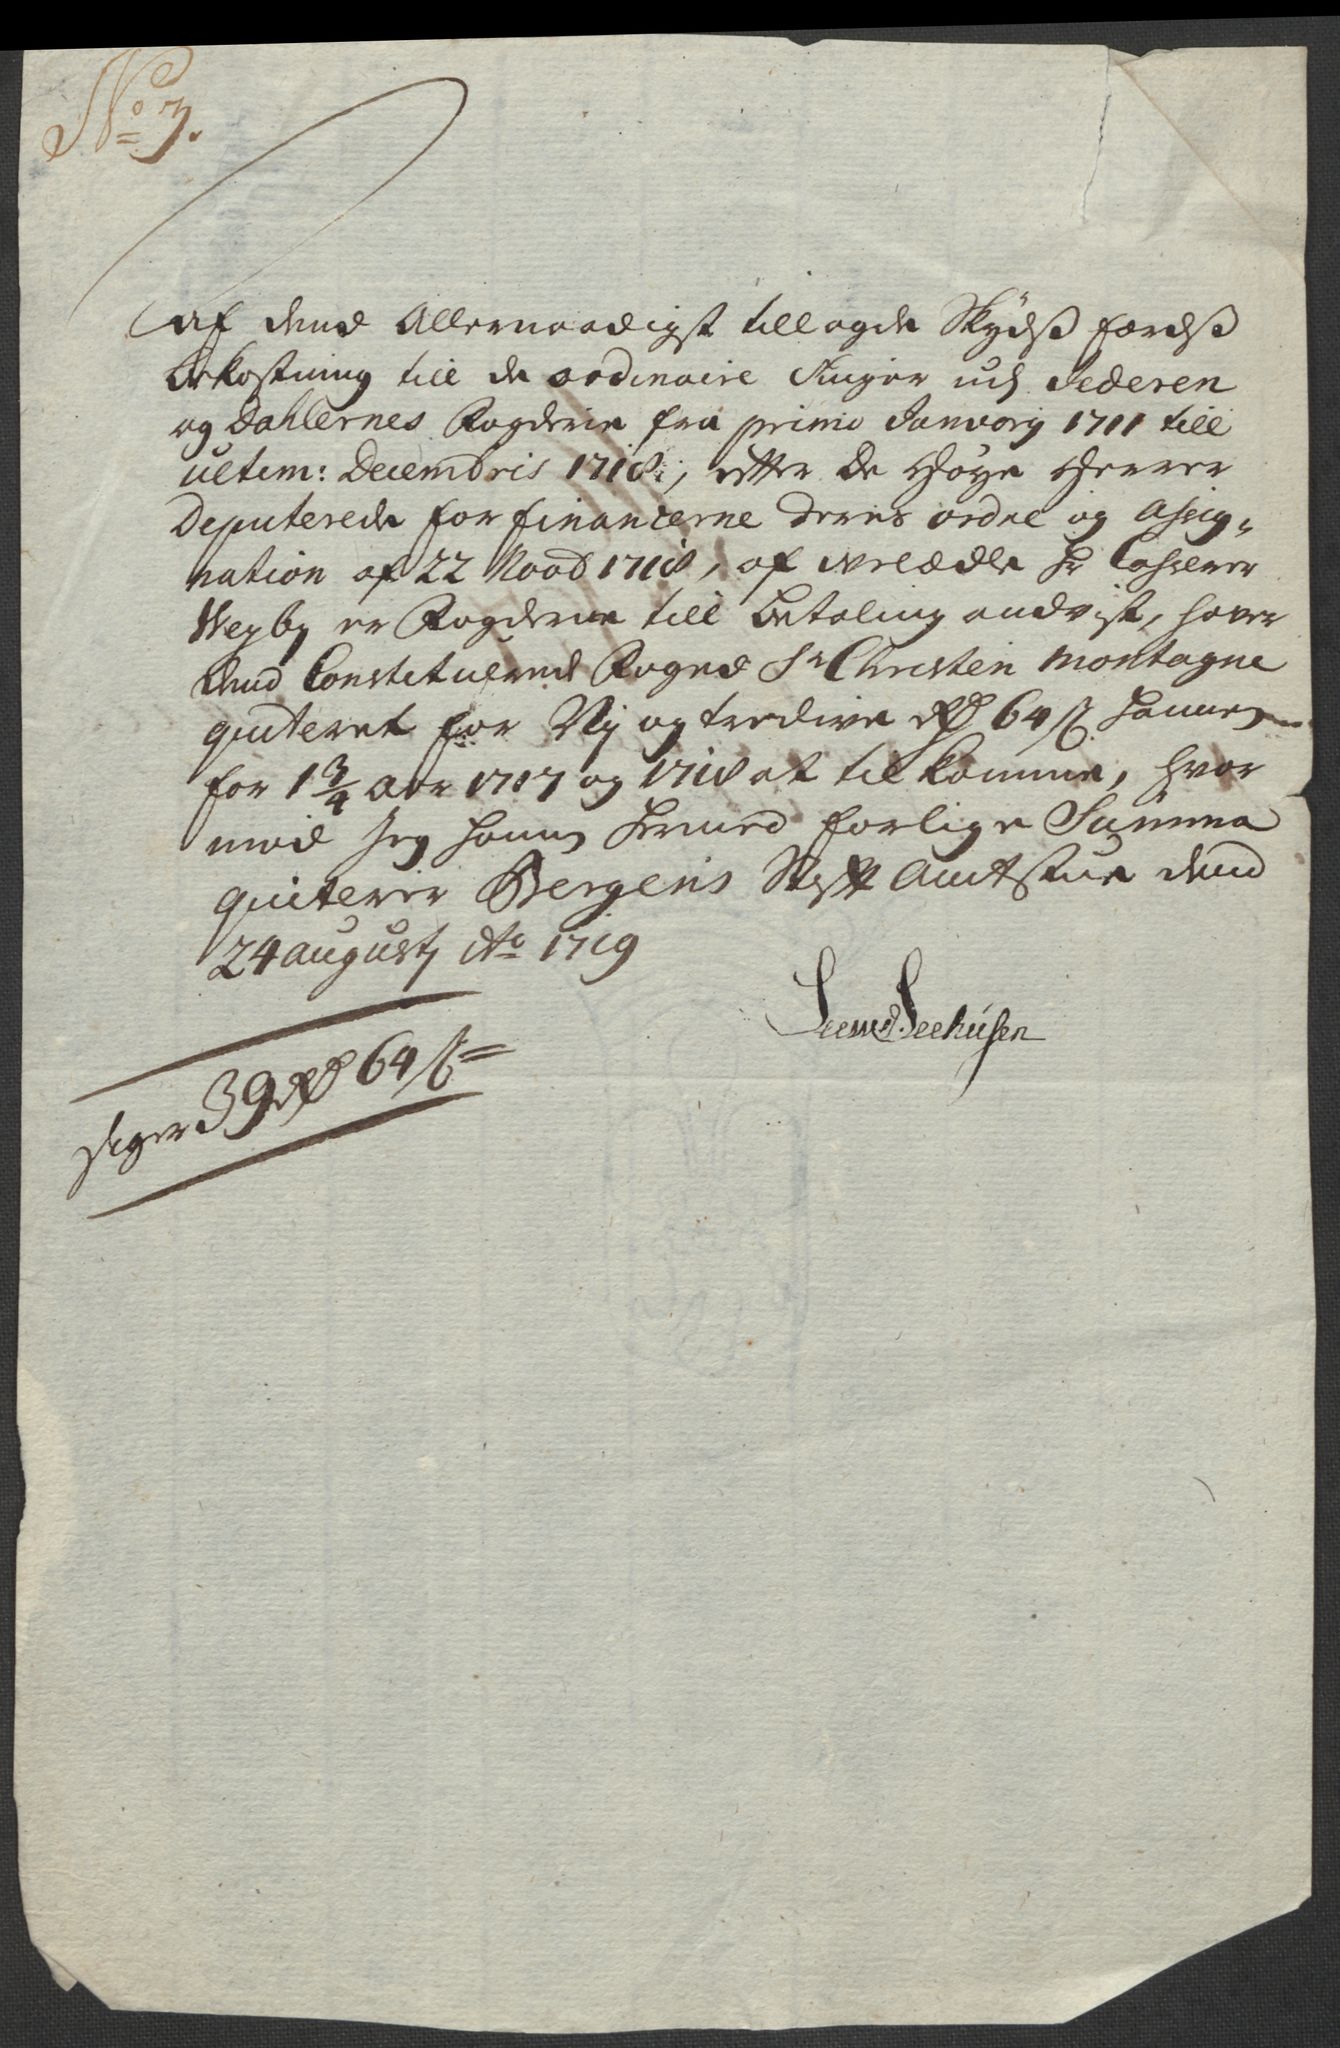 No 3.
Af dend Allernaadigst tillagde Skydsz færdsz
bekostning till de ordinaire Tinger udj Jederen
og Dahlernes Fogderie fra primo Janvarij 1711 till
ultim: Decembris 1718, efter de Høye Herrer
Deputerede for financerne deres ordre og Assig-
nation af 22 1718, af welædle Hr Casserer
Wegby er Fogderie till betaling andvist, haver
dend Constituerede Foged Sr Christen Montagne
qviteret for Nj og tredive Rdr 64 s hannem
for 1 3/4 Aar 1717 og 1718 at tilkomme, hvor
imod Jeg ham hermed forlige Summa
qviterer Bergens Stifft Amtstue dend
24 Augustj Ao 1719
Seehusen
siger 39 Rdr 64 s